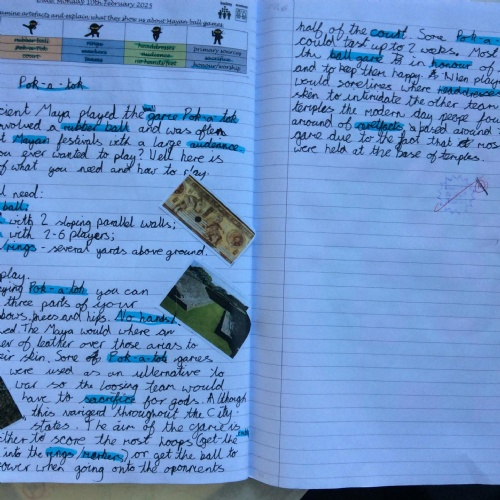 Date: Monday 10th February 2025
amine artefacts and explain what they show us about Mayan ball games
rubber ball
rings
headdresses
primary sources
pok-a-tok
markers
audience
sacrifice
court
honour
honour/worship
Pok-a-tok
cient Maya played the ball game Pok-a-tok
nvolved a rubber ball and was often
t Mayan festivals with a large audeance.
ou ever wanted to play? Well here is
of what you need and how to play.
l need:
ball;
with 2 sloping parallel walls;
with 2-6 players;
/rings - several yards above ground.
play.
aying Pok-a-tok you can
three parts of your
bows, knees and hips. No hands!
ed. The Maya would where an
er of leather over those areas to
eir skin. Some of Pok-a-tok games
were used as an ulternative to
war so the loosing team would
have to sacrifice for gods. Although
this varigerd throughout the City-
states. The aim of the game is
ither to score the most hoops (get the
into the rings/marker) or get the ball to
power when going onto the oponents
half of the court. Some Pok-a-
could last up to 2 weeks. Most
the ball game is in honour
and to keep them happy. A When play
would sometimes where headdresses
sken to intimidate the other team
temples the modern day peope fou
around of artefacts, a pased around
game due to the fact that most
were held at the base of temples.